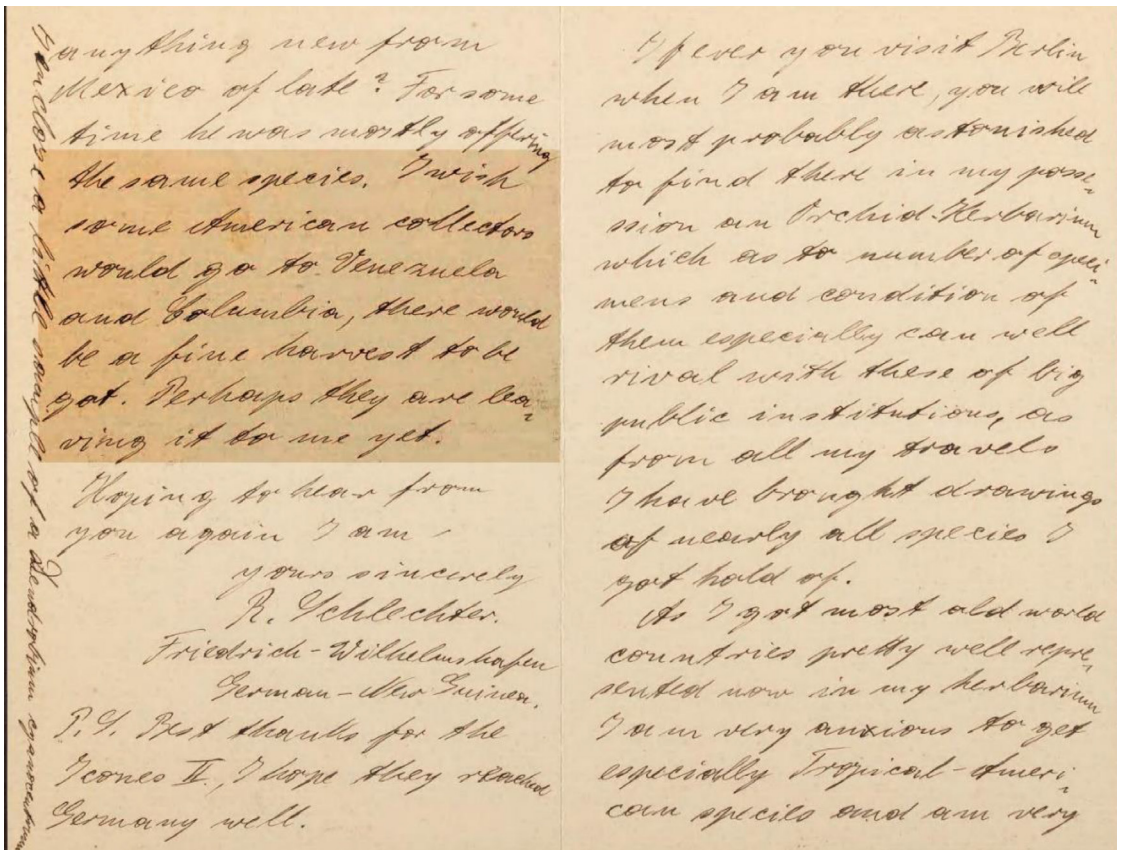 anything new from
Mexico of late? For some
time he was mostly offering
the same species. I wish
some American collectors
would go to Venezuela
and Columbia, there would
be a fine harvest to be
got. Perhaps they are lea-
ving it to me yet.
Hoping to hear from
you again I am
yours sincerely
R. Schlechter.
Friedrich-Wilhelmshafen
German-New Guinea.
P.S. Best thanks for the
Icones II, I hope they reached
Germany well.
I enclose a little sample of a Dendrobium cyanocentrum
If ever you visit Berlin
when I am there, you will
most probably astonished
to find there in my posse-
ssion an Orchid-Herbarium
which as to number of speci-
mens and condition of
them especially can well
rival with these of big
public institutions, as
from all my travels
I have brought drawings
of nearly all species I
got hold of.
As I got most old world
countries pretty well repre-
sented now in my herbarium
I am very anxious to get
especially Tropical-Ameri-
can species and am very